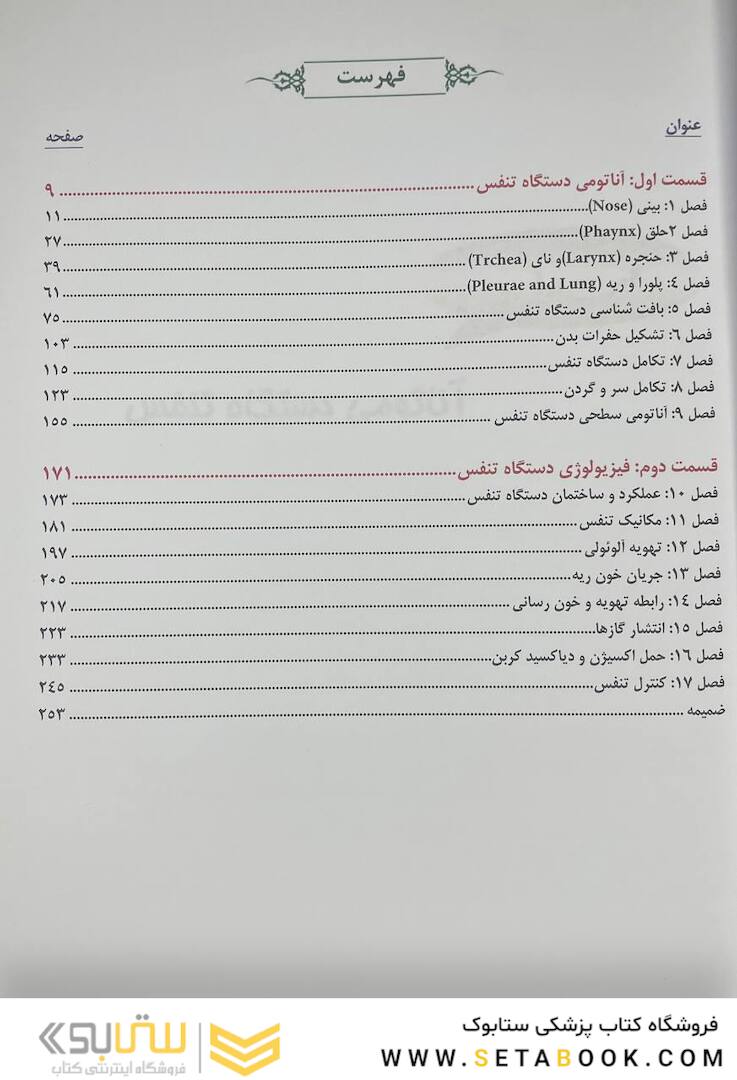 فهرست
عنوان
صفحه
قسمت اول: آناتومی دستگاه تنفس ۹
فصل ۱: بینی (Nose) ۱۱
فصل ۲حلق (Phaynx) ۲۷
فصل ۳: حنجره (Larynx)و نای (Trchea) ۳۹
فصل ٤: پلورا و ریه (Pleurae and Lung) ٦۱
فصل ٥: بافت شناسی دستگاه تنفس ۷٥
فصل ٦: تشکیل حفرات بدن ۱۰۳
فصل ۷: تکامل دستگاه تنفس ۱۱٥
فصل ۸: تکامل سر و گردن ۱۲۳
فصل ۹: آناتومی سطحی دستگاه تنفس ۱٥٥
قسمت دوم: فیزیولوژی دستگاه تنفس ۱۷۱
فصل ۱۰: عملکرد و ساختمان دستگاه تنفس ۱۷۳
فصل ۱۱: مکانیک تنفس ۱۸۱
فصل ۱۲: تهویه آلوئولی ۱۹۷
فصل ۱۳: جریان خون ریه ۲۰٥
فصل ۱٤: رابطه تهویه و خون رسانی ۲۱۷
فصل ۱٥: انتشار گازها ۲۲۳
فصل ۱٦: حمل اکسیژن و دیاکسید کربن ۲۳۳
فصل ۱۷: کنترل تنفس ۲٤٥
ضمیمه ۲٥۳
فروشگاه کتاب پزشکی ستابوک
WWW.SETABOOK.COM
ستابوک
فروشگاه اینترنتی کتاب